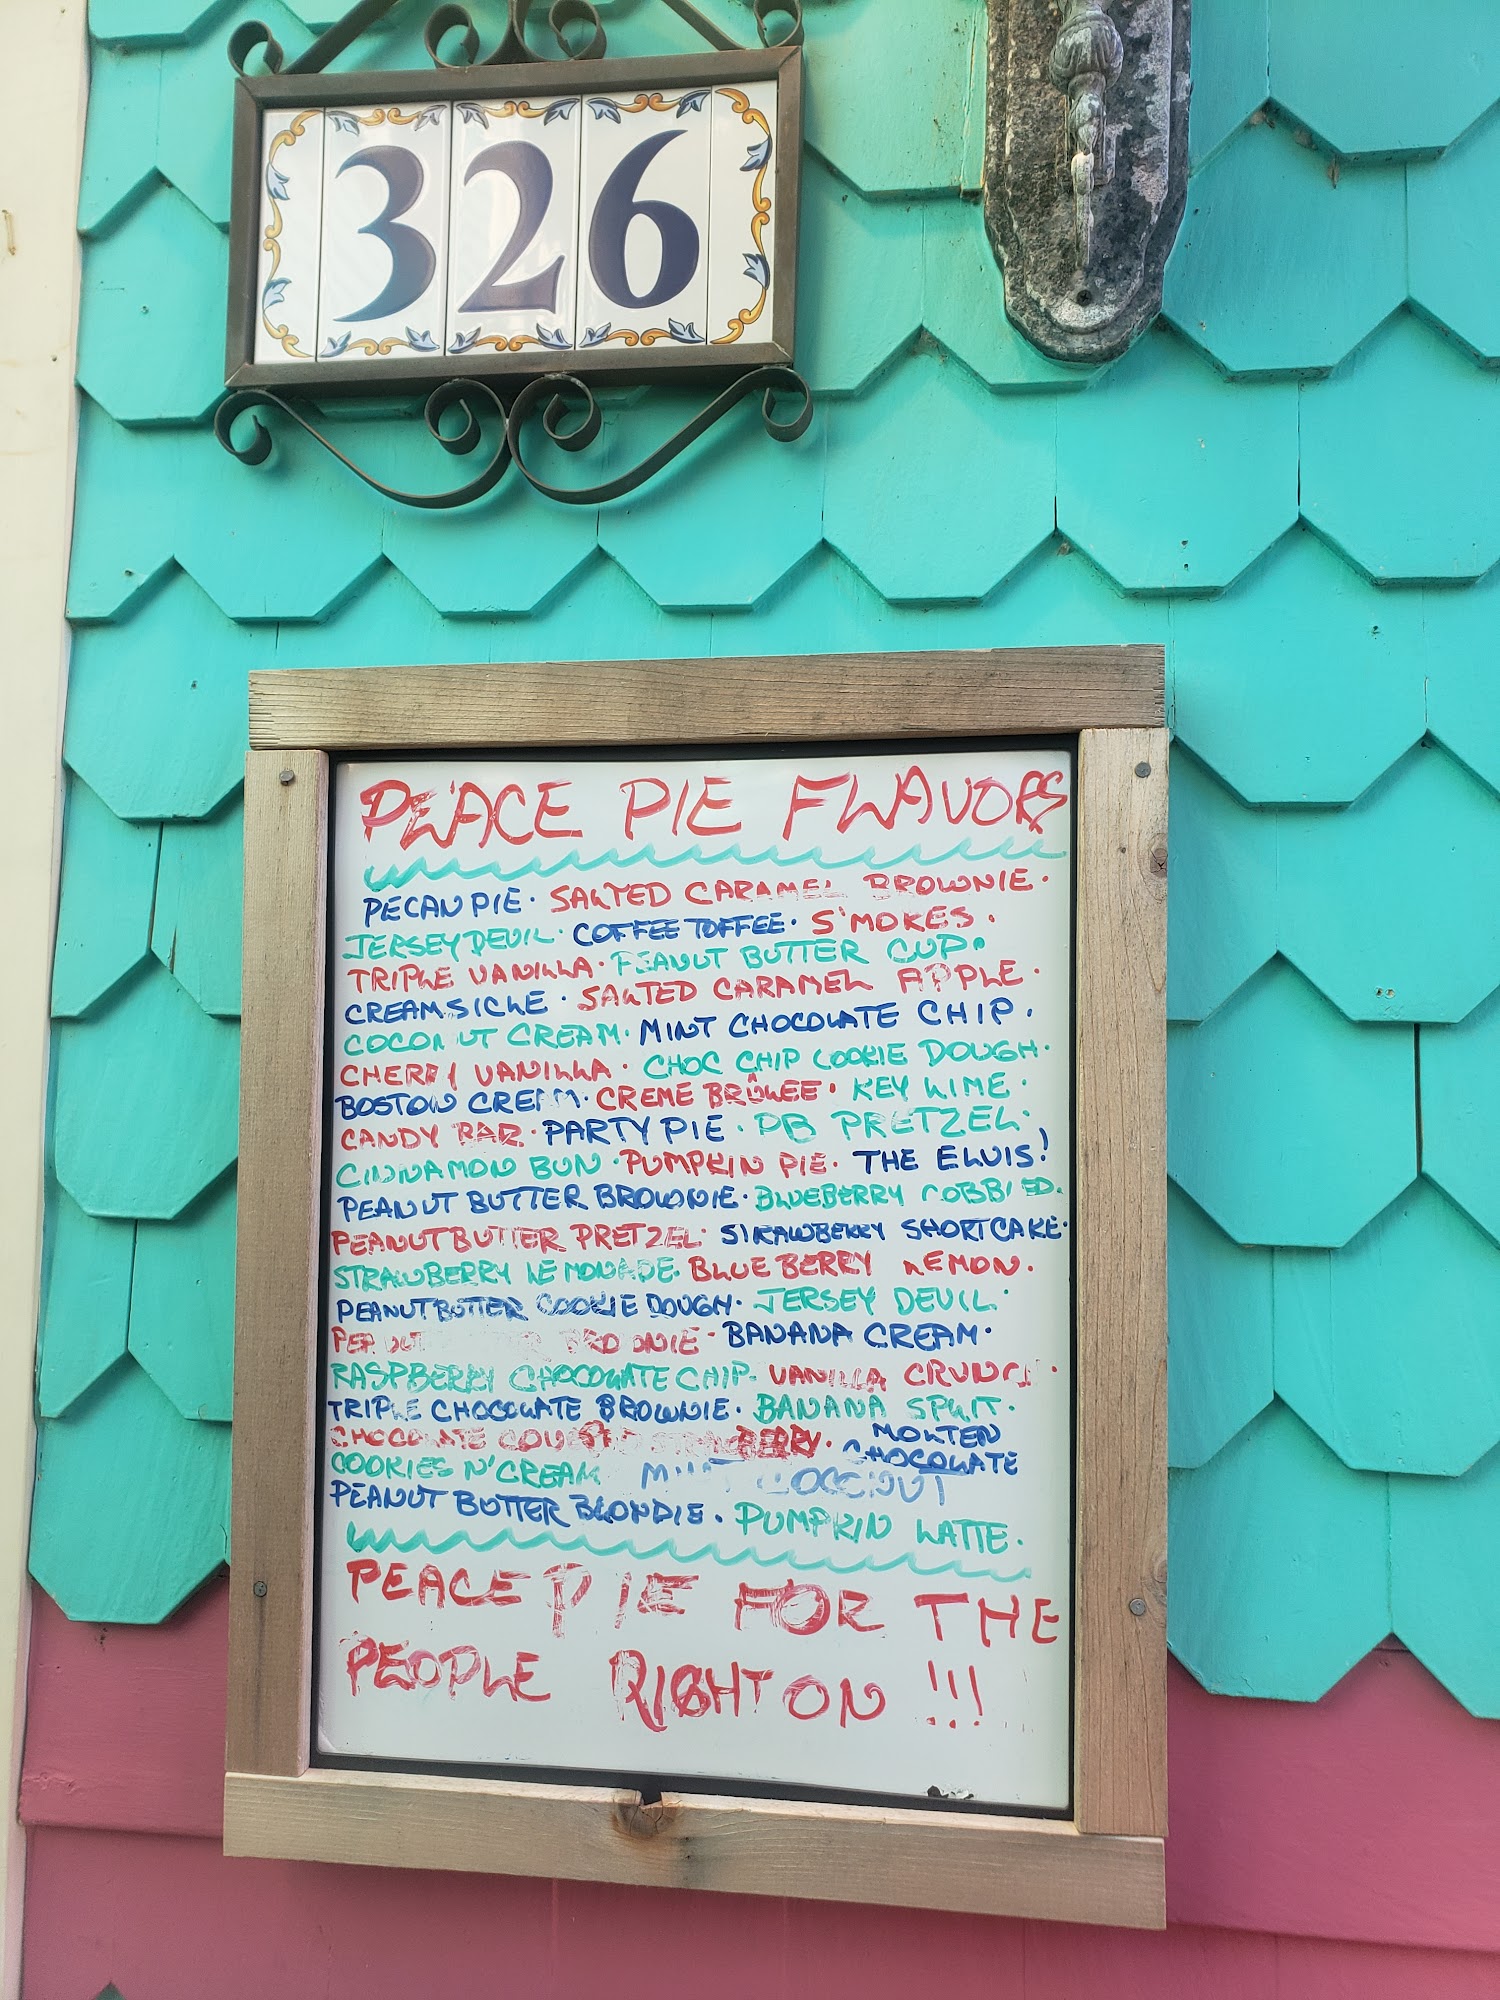 326
PEACE PIE FLAVORS
PECAN PIE · SALTED CARAMEL BROWNIE ·
JERSEY DEVIL · COFFEE TOFFEE · S'MORES ·
TRIPLE VANILLA · PEANUT BUTTER CUP ·
CREAMSICLE · SALTED CARAMEL APPLE ·
COCONUT CREAM · MINT CHOCOLATE CHIP ·
CHERRY VANILLA · CHOC CHIP COOKIE DOUGH ·
BOSTON CREAM · CREME BRÛLEE · KEY LIME ·
CANDY BAR · PARTY PIE · PB PRETZEL ·
CINNAMON BUN · PUMPKIN PIE · THE ELVIS!
PEANUT BUTTER BROWNIE · BLUEBERRY
PEANUT BUTTER PRETZEL · STRAWBERRY SHORTCAKE ·
STRAWBERRY LEMONADE · BLUEBERRY LEMON ·
PEANUT BUTTER COOKIE DOUGH · JERSEY DEVIL ·
BROWNIE · BANANA CREAM ·
RASPBERRY CHOCOLATE CHIP · VANILLA CRUNCH ·
TRIPLE CHOCOLATE BROWNIE · BANANA SPLIT ·
CHOCOLATE COVERED STRAWBERRY · MOLTEN CHOCOLATE
COOKIES N' CREAM MINT COCONUT
PEANUT BUTTER BLONDIE · PUMPKIN LATTE ·
PEACE PIE FOR THE
PEOPLE RIGHT ON !!!